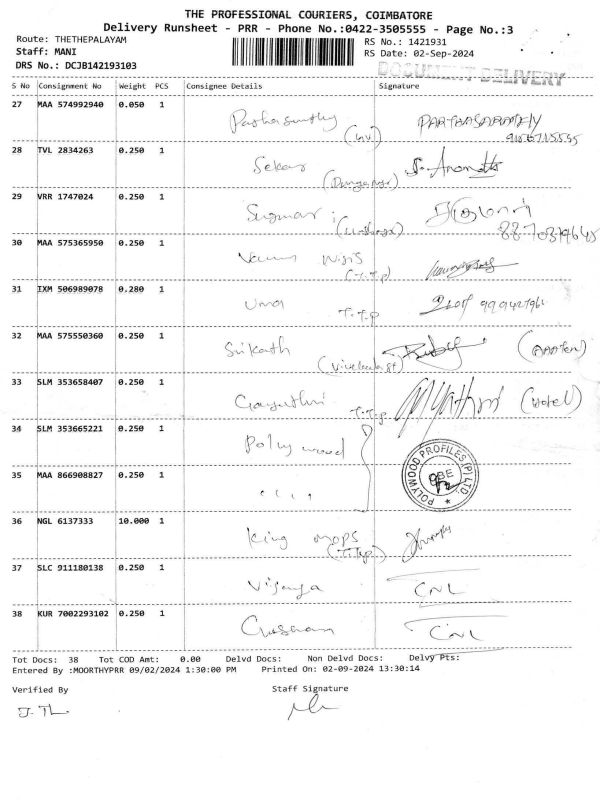 THE PROFESSIONAL COURIERS, COIMBATORE
Delivery Runsheet - PRR - Phone No.:0422-3505555 - Page No.:3
Route: THETHEPALAYAM RS No.: 1421931
Staff: MANI RS Date: 02-Sep-2024
DRS No.: DCJB142193103
DOCUMENT DELIVERY
S No Consignment No Weight PCS Consignee Details Signature
27 MAA 574992940 0.050 1
PARTHASARATHY
28 TVL 2834263 0.250 1
Sekar
29 VRR 1747024 0.250 1
Sugumar
30 MAA 575365950 0.250 1
(T.T.P)
31 IXM 506989078 0.280 1
Uma T.T.P
32 MAA 575550360 0.250 1
Srikath
33 SLM 353658407 0.250 1
Gayathri T.T.P (Hotel)
34 SLM 353665221 0.250 1
Polywood
POLYWOOD PROFILES (P) LTD.
35 MAA 866908827 0.250 1
" "
36 NGL 6137333 10.000 1
King mops
37 SLC 911180138 0.250 1
Vijaya CNL
38 KUR 7002293102 0.250 1
CNL
Tot Docs: 38 Tot COD Amt: 0.00 Delvd Docs: Non Delvd Docs: Delvy Pts:
Entered By :MOORTHYPRR 09/02/2024 1:30:00 PM Printed On: 02-09-2024 13:30:14
Verified By Staff Signature